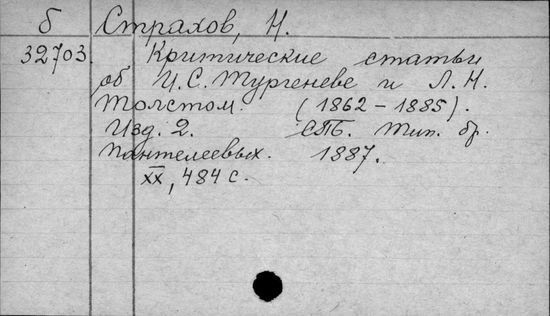 б Страхов, Н.
32703. Критические статьи
об И.С. Тургеневе и Л.Н.
Толстом. (1862-1885).
Изд. 2. СПб. Тип. бр.
Пантелеевых. 1887.
XX, 484 с.